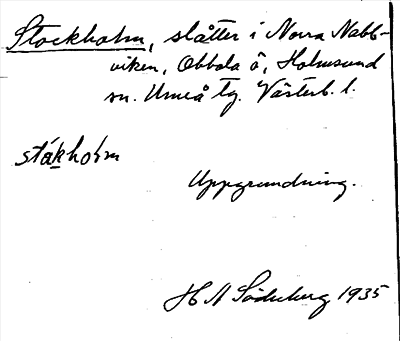 Stockholm, slåtter i Norra Nabb-
viken, Obbola ö, Holmsund
sn. Umeå tg. Västerb. l.
ståkholm
Uppgrundning.
H N Söderberg 1935